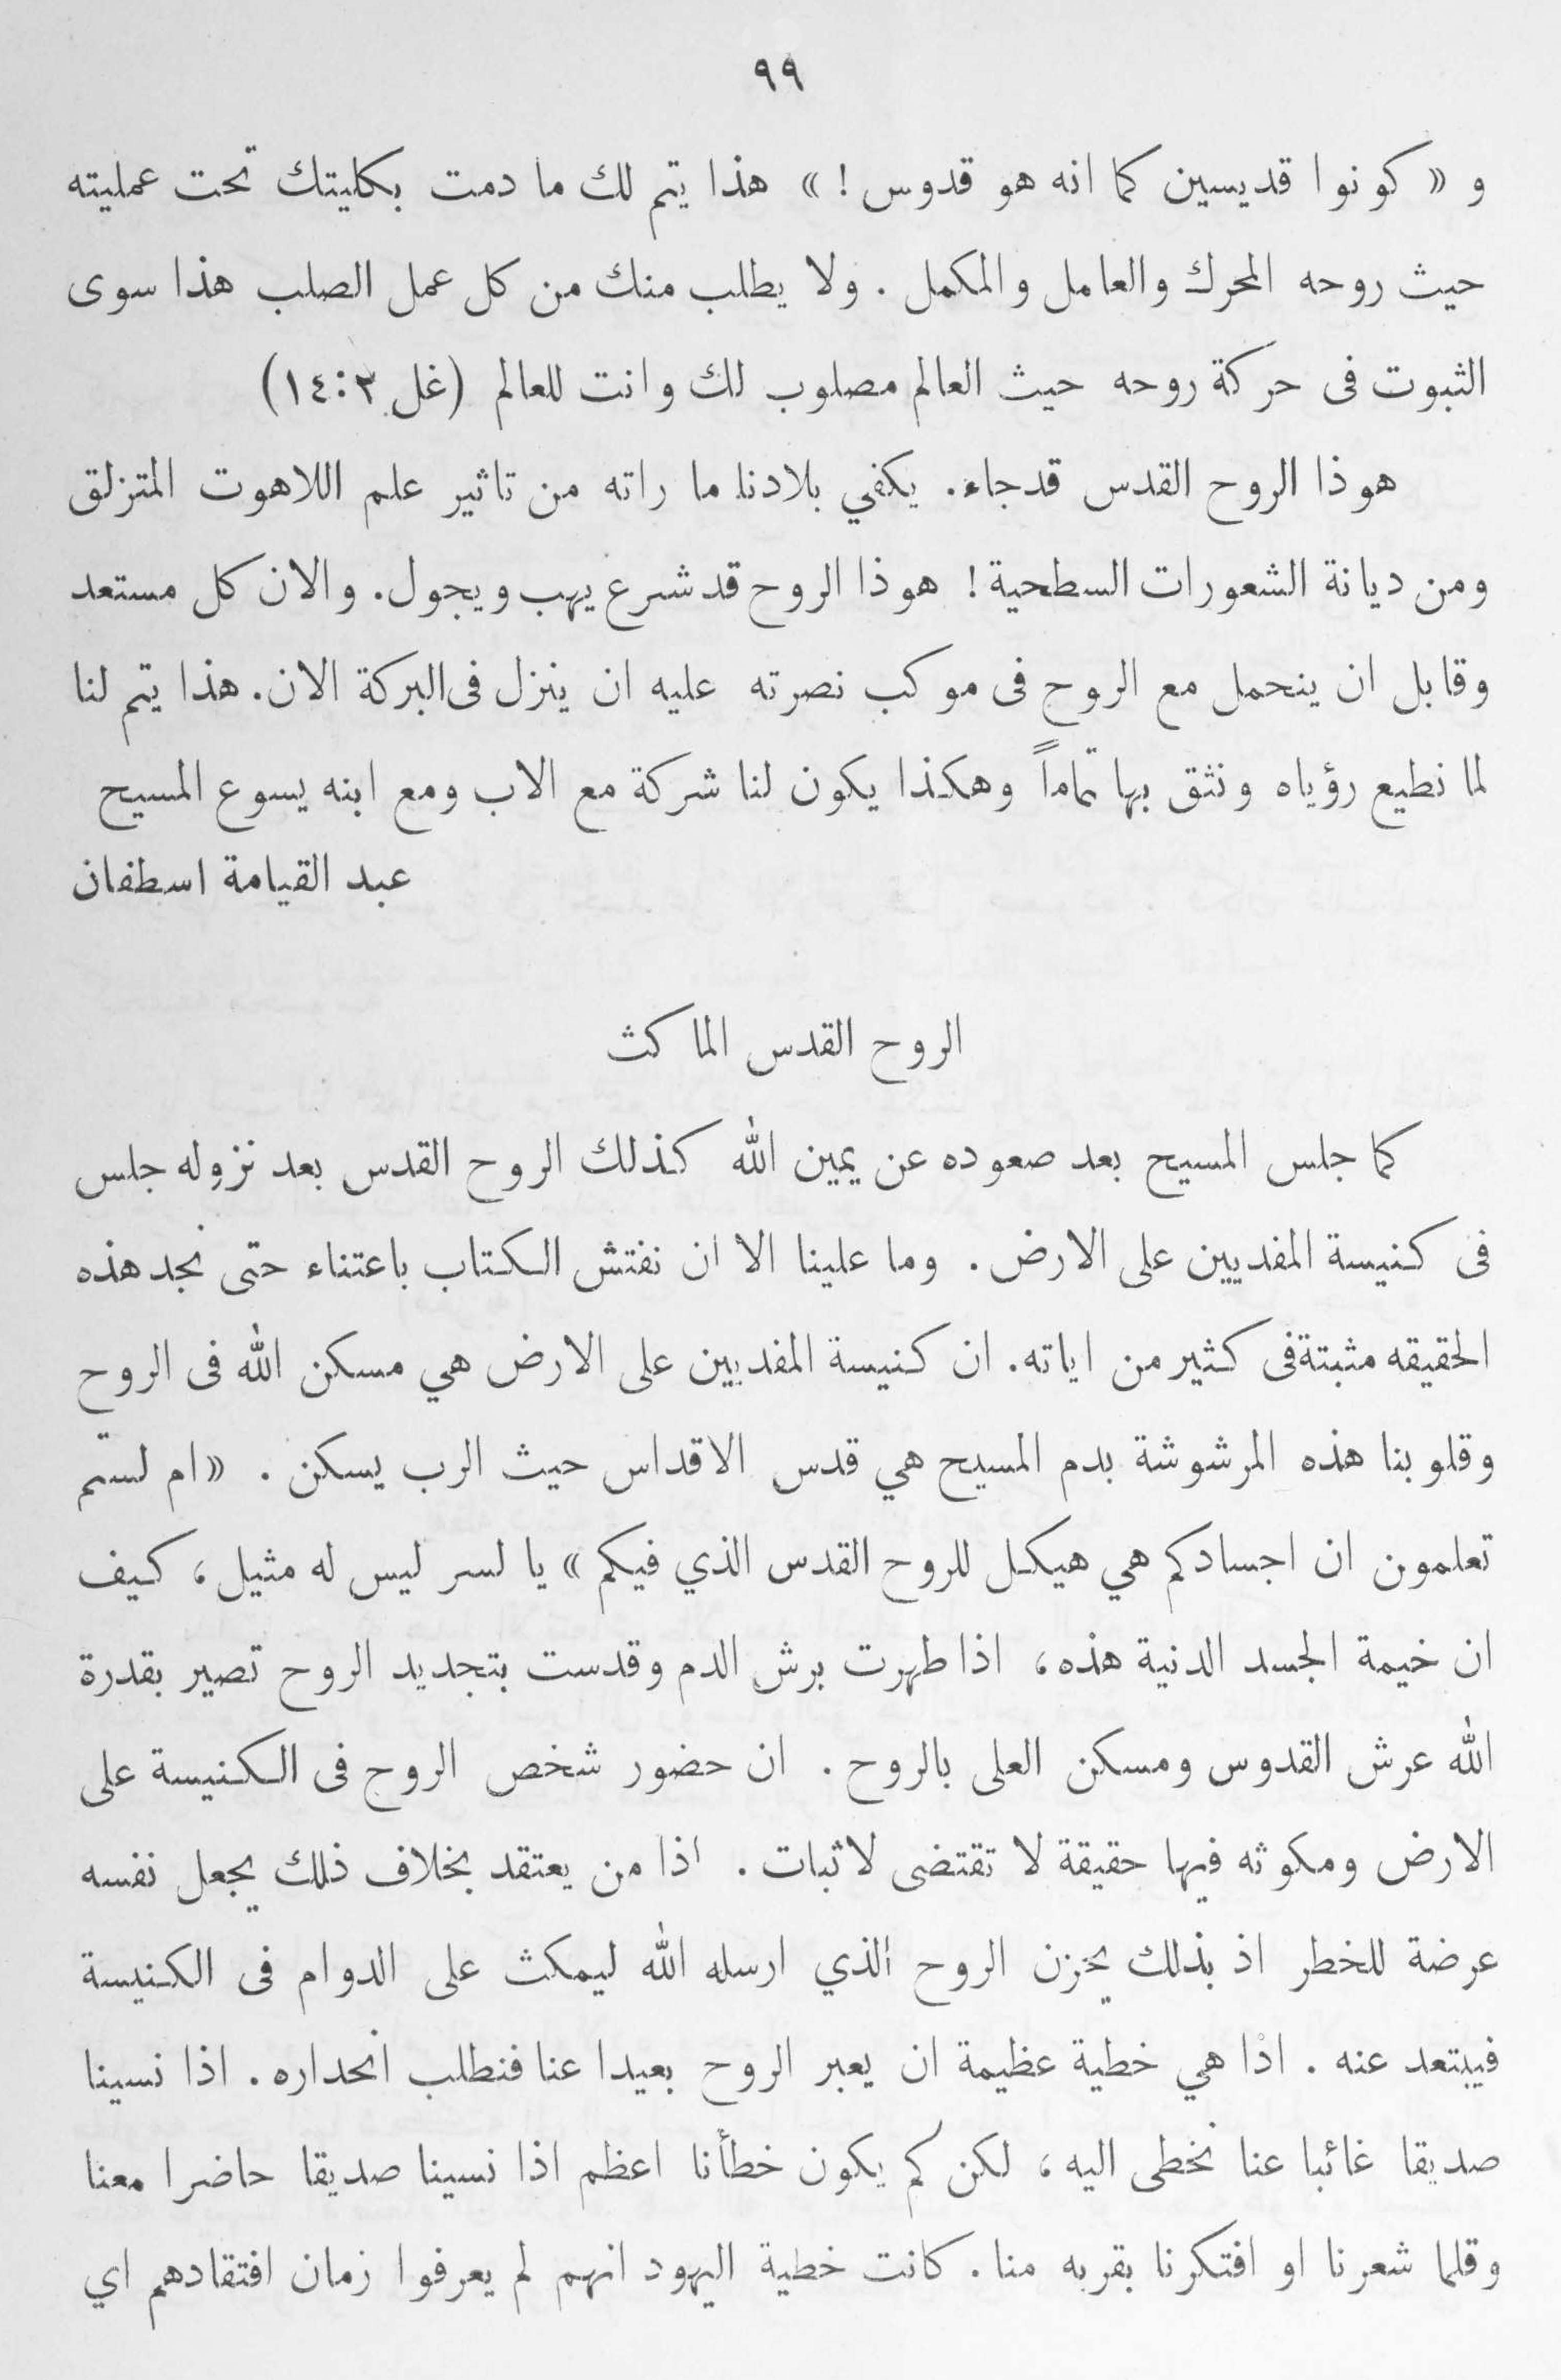 ٩٩
و « كونوا قديسين كما انه هو قدوس ! » هذا يتم لك ما دمت بكليتك تحت عمليته
حيث روحه المحرك والعامل والمكمل . ولا يطلب منك من كل عمل الصلب هذا سوى
الثبوت فى حركة روحه حيث العالم مصلوب لك وانت للعالم (غل ٣:١٤)
هوذا الروح القدس قد جاء . يكفي بلادنا ما راته من تاثير علم اللاهوت المتزلق
ومن ديانة الشعورات السطحية ! هوذا الروح قد شرع يهب ويجول . والان كل مستعد
وقابل ان ينحمل مع الروح فى موكب نصرته عليه ان ينزل فى البركة الان . هذا يتم لنا
لما نطيع رؤياه ونثق بها تماماً وهكذا يكون لنا شركة مع الاب ومع ابنه يسوع المسيح
عبد القيامة اسطفان
الروح القدس الماكث
كما جلس المسيح بعد صعوده عن يمين الله كذلك الروح القدس بعد نزوله جلس
فى كنيسة المفديين على الارض . وما علينا الا ان نفتش الكتاب باعتناء حتى نجد هذه
الحقيقه مثبتة فى كثير من اياته . ان كنيسة المفديين على الارض هي مسكن الله فى الروح
وقلوبنا هذه المرشوشة بدم المسيح هي قدس الاقداس حيث الرب يسكن . « ام لستم
تعلمون ان اجسادكم هي هيكل للروح القدس الذي فيكم » يا لسر ليس له مثيل ، كيف
ان خيمة الجسد الدنية هذه ، اذا طهرت برش الدم وقدست بتجديد الروح تصير بقدرة
الله عرش القدوس ومسكن العلى بالروح . ان حضور شخص الروح فى الكنيسة على
الارض ومكوثه فيها حقيقة لا تقتضى لاثبات . اذا من يعتقد بخلاف ذلك يجعل نفسه
عرضة للخطر اذ بذلك يحزن الروح الذي ارسله الله ليمكث على الدوام فى الكنيسة
فيبتعد عنه . اذا هي خطية عظيمة ان يعبر الروح بعيدا عنا فنطلب انحداره . اذا نسينا
صديقا غائبا عنا نخطى اليه ، لكن كم يكون خطأنا اعظم اذا نسينا صديقا حاضرا معنا
وقلما شعرنا او افتكرنا بقربه منا . كانت خطية اليهود انهم لم يعرفوا زمان افتقادهم اي